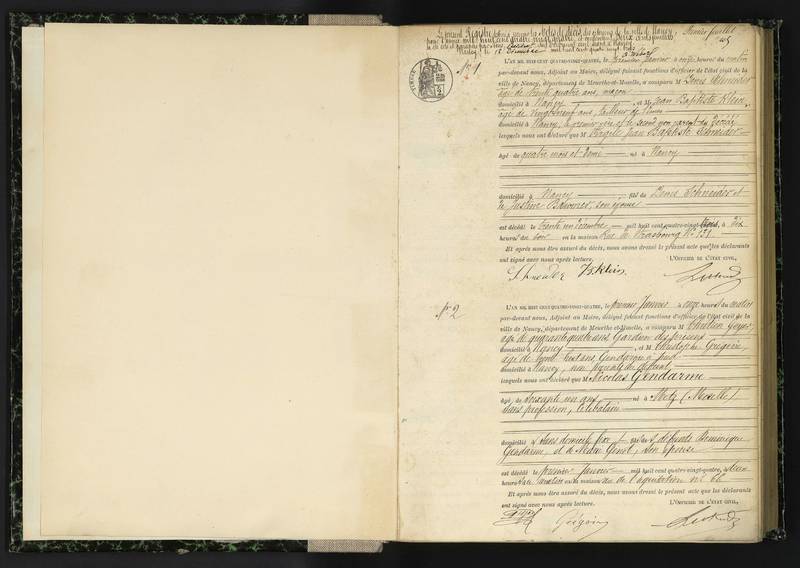 Le présent Registre destiné à recevoir les Actes de décès des citoyens de la ville de Nancy,
pour l'année mil huit cent quatre vingt quatre, et contenant deux cents feuillets
a été coté et paraphé par nous
Nancy, le 12 Décembre mil huit cent quatre vingt trois
Premier feuillet
N° 1
L'AN MIL HUIT CENT QUATRE-VINGT-QUATRE, le premier Janvier à onze heures du matin
par-devant nous, Adjoint au Maire, délégué faisant fonctions d'officier de l'état civil de la
ville de Nancy, département de Meurthe-et-Moselle, a comparu M Denis Schneider
âgé de trente quatre ans, maçon
domicilié à Nancy et M Jean Baptiste Klein,
âgé de vingt neuf ans, tailleur de
domicilié à Nancy, le premier père et le second non parent du décédé
lesquels nous ont déclaré que M Virgile Jean Baptiste Schneider
âgé de quatre mois et demi né à Nancy
domicilié à Nancy fils de Denis Schneider et
de Justine son épouse
est décédé le trente un décembre mil huit cent quatre-vingt-trois, à dix
heures du soir en la maison Rue de Strasbourg N° 131
Et après nous être assuré du décès, nous avons dressé le présent acte que les déclarants
ont signé avec nous après lecture. L'OFFICIER DE L'ÉTAT CIVIL,
Schneider Klein
N° 2
L'AN MIL HUIT CENT QUATRE-VINGT-QUATRE, le premier Janvier à onze heures du matin
par-devant nous, Adjoint au Maire, délégué faisant fonctions d'officier de l'état civil de la
ville de Nancy, département de Meurthe-et-Moselle, a comparu M Chrétien Geyer,
âgé de quarante quatre ans Gardien des prisons
domicilié à Nancy et M Christophe Grégoire,
âgé de trente huit ans, Gendarme à pied
domicilié à Nancy, non parents du défunt
lesquels nous ont déclaré que M Nicolas Gendarme
âgé de soixante un ans né à Metz (Moselle)
sans profession, célibataire
domicilié à sans domicile fixe fils de défunts Dominique
Gendarme, et de son épouse
est décédé le premier Janvier mil huit cent quatre-vingt-quatre, à
heures du matin en la maison rue de l'équitation n° 66
Et après nous être assuré du décès, nous avons dressé le présent acte que les déclarants
ont signé avec nous après lecture. L'OFFICIER DE L'ÉTAT CIVIL,
Grégoire